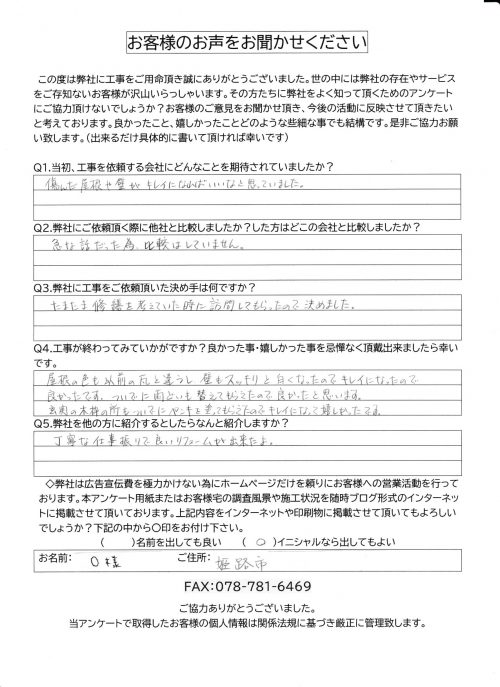 お客様のお声をお聞かせください
この度は弊社に工事をご用命頂き誠にありがとうございました。世の中には弊社の存在やサービス
をご存知ないお客様が沢山いらっしゃいます。その方たちに弊社をよく知って頂くためのアンケート
にご協力頂けないでしょうか？お客様のご意見をお聞かせ頂き、今後の活動に反映させて頂きたい
と考えております。良かったこと、嬉しかったことどのような些細な事でも結構です。是非ご協力お願
い致します。（出来るだけ具体的に書いて頂ければ幸いです）
Q1.当初、工事を依頼する会社にどんなことを期待されていましたか？
傷んだ屋根や壁がキレイになればいいなと思っていました。
Q2.弊社にご依頼頂く際に他社と比較しましたか？した方はどこの会社と比較しましたか？
急な話だった為、比較はしていません。
Q3.弊社に工事をご依頼頂いた決め手は何ですか？
たまたま修繕を考えていた時に訪問してもらったので決めました。
Q4.工事が終わってみていかがですか？良かった事・嬉しかった事を忌憚なく頂戴出来ましたら幸い
です。
屋根の色も以前の瓦と違うし壁もスッキリと白くなったのでキレイになったので
良かったです。ついでに雨といも替えてもらえたので良かったと思います。
玄関の木枠の所もついでにペンキを塗ってもらえたのでキレイになって嬉しかったです
Q5.弊社を他の方に紹介するとしたらなんと紹介しますか？
丁寧な仕事振りで良いリフォームが出来たよ。
◇弊社は広告宣伝費を極力かけない為にホームページだけを頼りにお客様への営業活動を行って
おります。本アンケート用紙またはお客様宅の調査風景や施工状況を随時ブログ形式のインターネッ
トに掲載させて頂いております。上記内容をインターネットや印刷物に掲載させて頂いてもよろしい
でしょうか？下記の中から〇印をお付け下さい。
（　　）名前を出しても良い　（ ○ ）イニシャルなら出してもよい
お名前： O様 ご住所： 姫路市
FAX：078-781-6469
ご協力ありがとうございました。
当アンケートで取得したお客様の個人情報は関係法規に基づき厳正に管理致します。